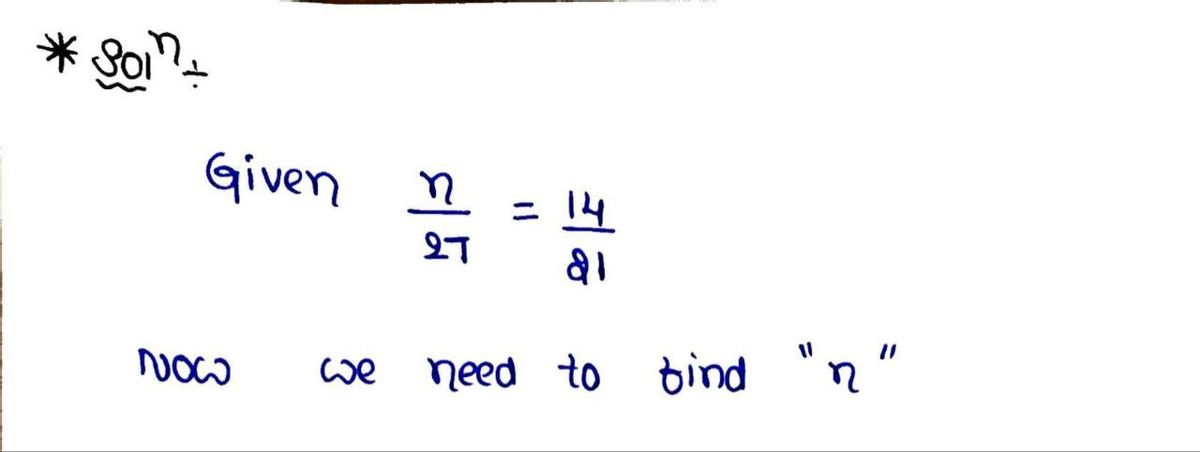 * Solⁿ ÷
Given n/27 = 14/21
Now we need to find "n"